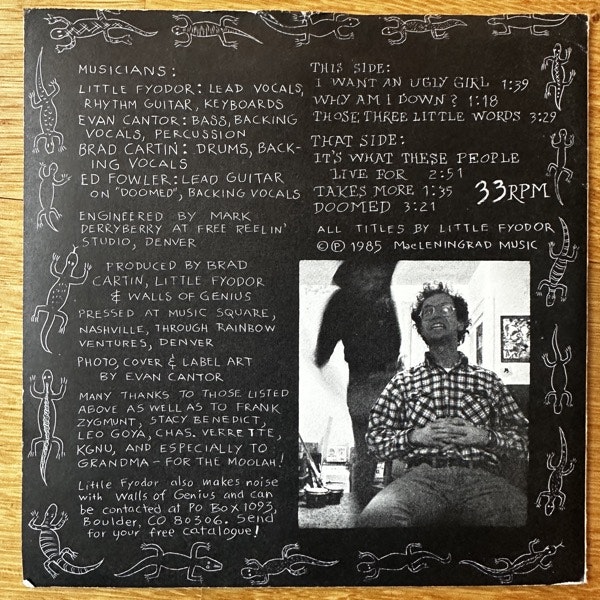 MUSICIANS:
LITTLE FYODOR: LEAD VOCALS,
RHYTHM GUITAR, KEYBOARDS
EVAN CANTOR: BASS, BACKING
VOCALS, PERCUSSION
BRAD CARTIN: DRUMS, BACK-
ING VOCALS
ED FOWLER: LEAD GUITAR
ON "DOOMED", BACKING VOCALS
ENGINEERED BY MARK
DERRYBERRY AT FREE REELIN'
STUDIO, DENVER
PRODUCED BY BRAD
CARTIN, LITTLE FYODOR
& WALLS OF GENIUS
PRESSED AT MUSIC SQUARE,
NASHVILLE, THROUGH RAINBOW
VENTURES, DENVER
PHOTO, COVER & LABEL ART
BY EVAN CANTOR
MANY THANKS TO THOSE LISTED
ABOVE AS WELL AS TO FRANK
ZYGMUNT, STACY BENEDICT,
LEO GOYA, CHAS. VERRETTE,
KGNU, AND ESPECIALLY TO
GRANDMA – FOR THE MOOLAH!
Little Fyodor also makes noise
with Walls of Genius and can
be contacted at PO Box 1093,
Boulder, CO 80306. Send
for your free catalogue!
THIS SIDE:
I WANT AN UGLY GIRL 1:39
WHY AM I DOWN? 1:18
THOSE THREE LITTLE WORDS 3:29
THAT SIDE:
IT'S WHAT THESE PEOPLE
LIVE FOR 2:51
TAKES MORE 1:35
DOOMED 3:21
33RPM
ALL TITLES BY LITTLE FYODOR
© ℗ 1985 MacLENINGRAD MUSIC